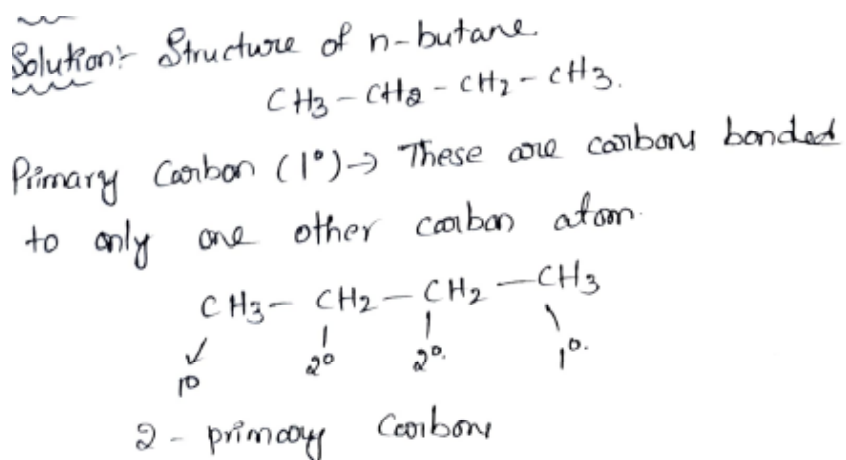 Solution:- Structure of n-butane
CH3 - CH2 - CH2 - CH3.
Primary Carbon (1°) → These are carbons bonded
to only one other carbon atom.
CH3 - CH2 - CH2 - CH3
1° 2° 2°. 1°.
2 - primary Carbons